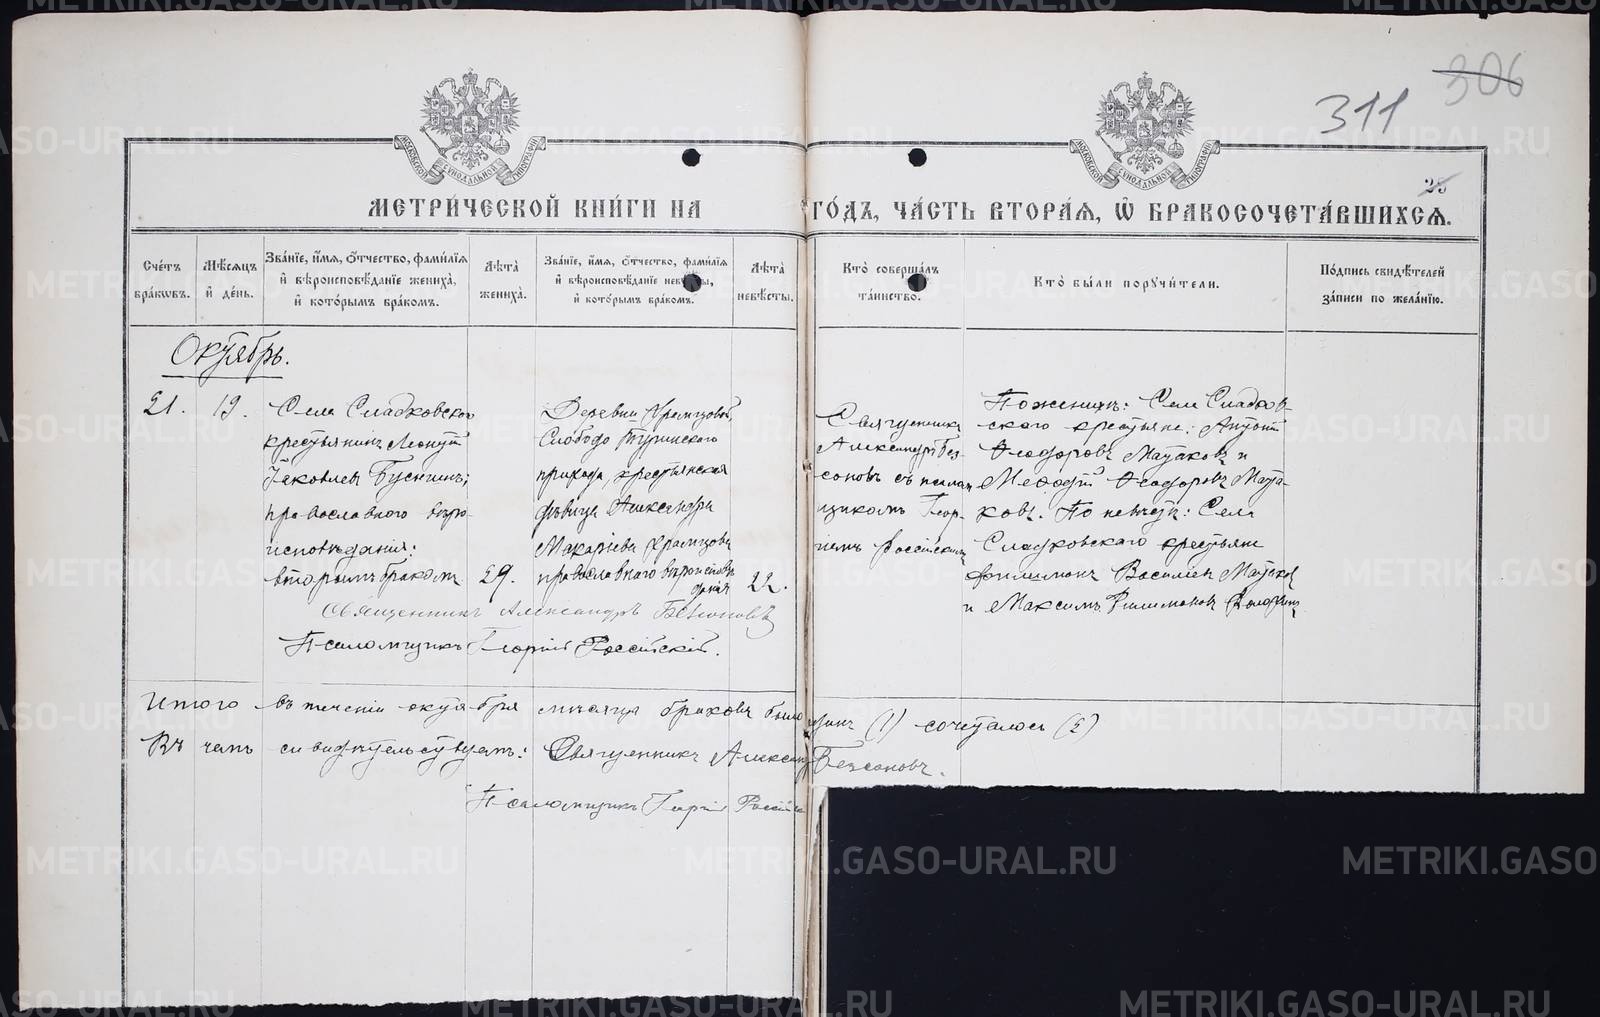 306
311
МОСКОВСКОЙ СѴНОДАЛЬНОЙ ТИПОГРАФІИ
МОСКОВСКОЙ СѴНОДАЛЬНОЙ ТИПОГРАФІИ
25
МЕТРИ́ЧЕСКОЙ КНИ́ГИ НА ГО́ДЪ, ЧА́СТЬ ВТОРА́Я, Ѽ БРАКОСОЧЕТА́ВШИХСЯ.
Сче́тъ бра́кѡвъ.
Мѣ́сяцъ и҆ де́нь.
Зва́нїе, и҆́мѧ, ѻ҆́тчество, фами́лїѧ и҆ вѣроисповѣ́данїе жениха̀, и҆ кото́рымъ бра́комъ.
Лѣ́та жениха̀.
Зва́нїе, и҆́мѧ, ѻ҆́тчество, фами́лїѧ и҆ вѣроисповѣ́данїе невѣ́сты, и҆ кото́рымъ бра́комъ.
Лѣ́та невѣ́сты.
Кто̀ соверша́лъ та́инство.
Кто̀ бы́ли порꙋчи́тели.
По́дпись свидѣ́телей за́писи по жела́нїю.
Октябрь.
21.
19.
Села Сладковскаго
крестьянинъ Леонтій
Іаковлевъ Бусыгинъ;
православнаго вѣро-
исповѣданія;
вторымъ бракомъ
29.
Деревни Храмцовой,
Слободо Туринского
прихода, крестьянская
дѣвица Александра
Макаріева Храмцова
православнаго вѣроисповѣ
данія
22.
Священникъ
Александръ Без-
соновъ съ псалом-
щикомъ Геор-
гіемъ Россійскимъ
По женихѣ: Села Сладков-
скаго крестьяне: Антоній
Ѳеодоровъ Матаковъ и
Меѳодій Ѳеодоровъ Мата-
ковъ. По невѣстѣ: Села
Сладковскаго крестьяне
Филимонъ Васильевъ
и Максимъ Филимоновъ
Священникъ Александръ Безсоновъ
Псаломщикъ Георгій Россійскій.
Итого въ теченіи октября мѣсяца браковъ было одинъ (1) сочеталось (2)
Въ чемъ свидѣтельствуемъ: Священникъ Александръ Безсоновъ.
Псаломщикъ Георгій Россійскій
METRIKI.GASO-URAL.RU